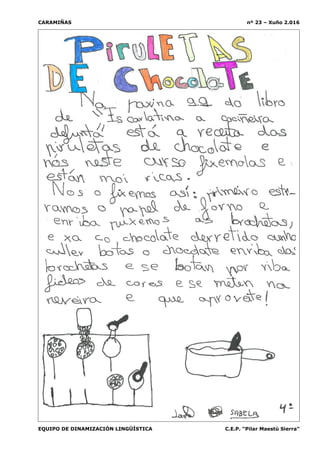 CARAMIÑAS nº 23 – Xuño 2.016
PIRULETAS
DE Chocolate
Na paxina 99 do libro
de "Escarlatina a cociñeira
defunta" está a receita das
piruletas de chocolate e
nós neste curso fixemolas e
están moi ricas.
Nos o fixemos así: primeiro esti-
ramos o papel de forno e
enriba puxemos as brochetas,
e xa co chocolate derretido cunha
culler botas o chocolate enriba das
brochetas e se botan por riba
fideos de cores e se meten na
neveira e que aproveite!
SABELA
4º
EQUIPO DE DINAMIZACIÓN LINGÜÍSTICA C.E.P. "Pilar Maestú Sierra"